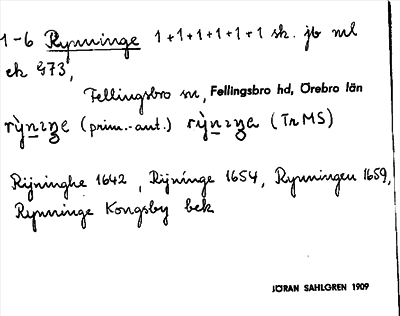 1-6 Rynninge 1+1+1+1+1+1 sk. jb ml
ek 473,
Fellingsbro sn, Fellingsbro hd, Örebro län
(prim.-ant.) (Tr MS)
Rijninghe 1642, Rijninge 1654, Rynningen 1659,
Rynninge Kongsby bek
JÖRAN SAHLGREN 1909